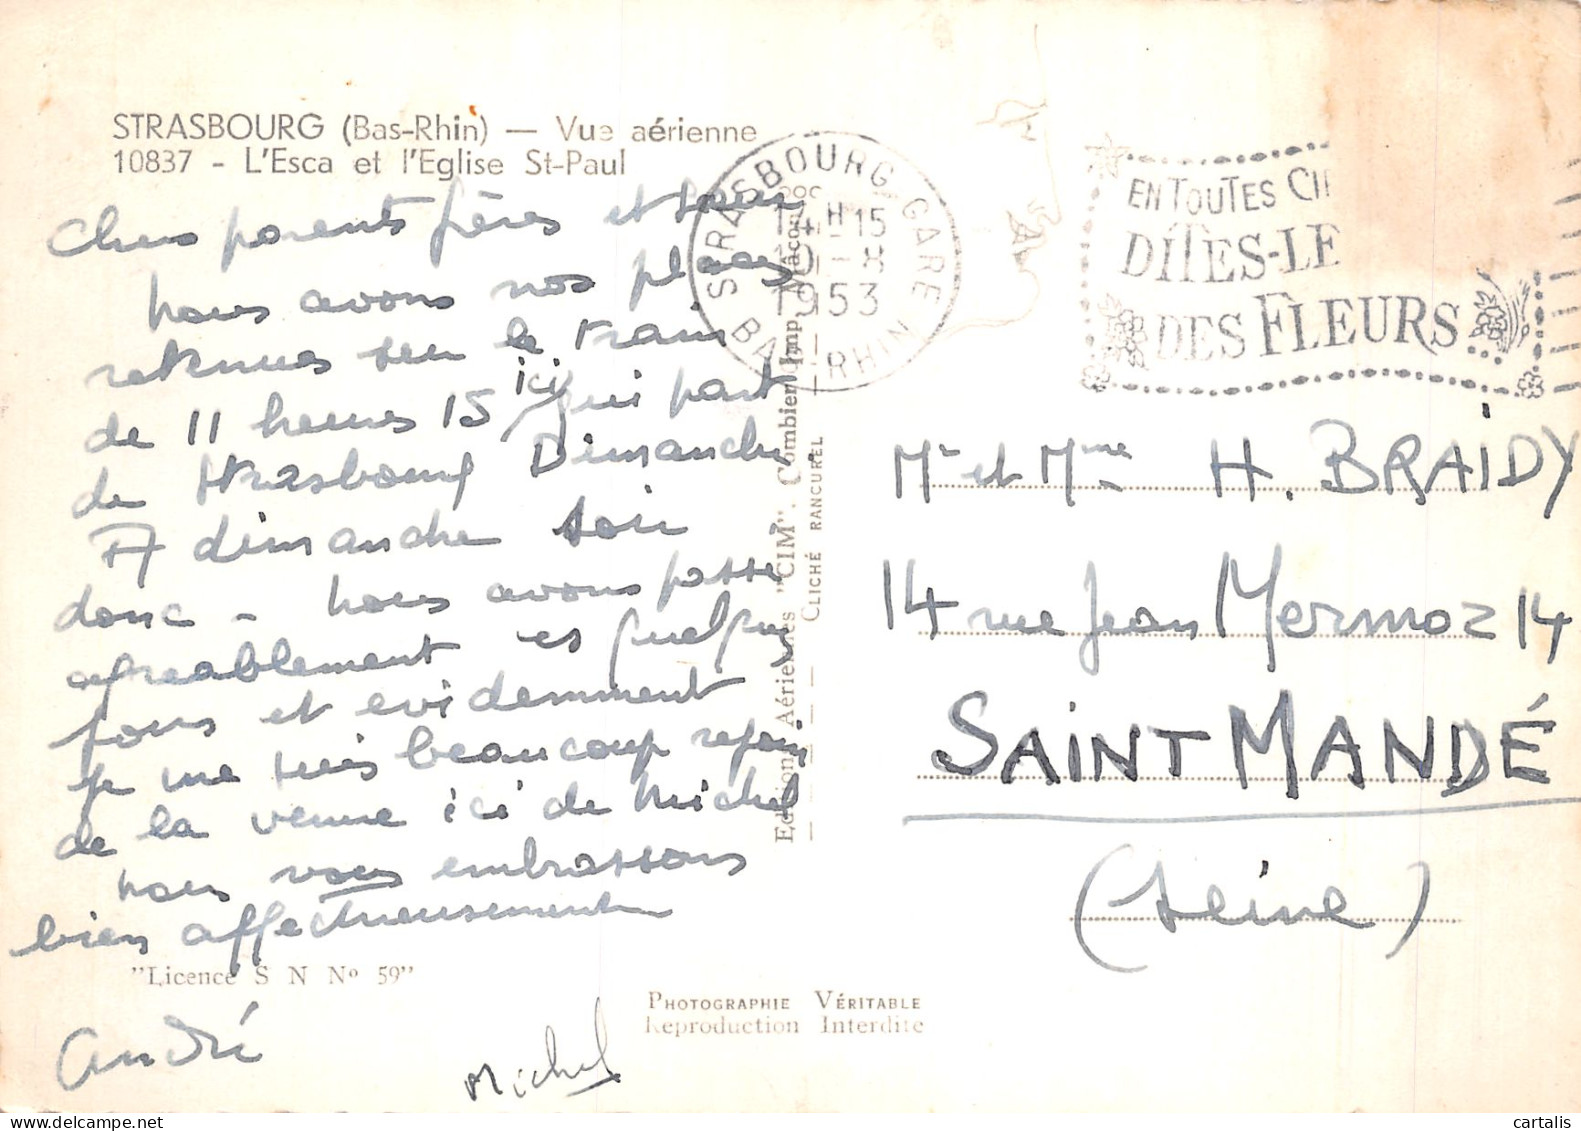 STRASBOURG (Bas-Rhin) — Vue aérienne
10837 - L'Esca et l'Eglise St-Paul
Chers parents frères et
nous avons nos places
retenues sur le train
de 11 heures 15 ici qui part
de Strasbourg Dimanche.
A dimanche soir
donc - nous avons passé
agréablement es quelques
jours et evidemment
je me suis beaucoup rejoui
de la venue ici de Michel
nous vous embrassons
bien affectueusement
"Licence S N Nº 59"
André
Michel
PHOTOGRAPHIE VÉRITABLE
Reproduction Interdite
Editions Aériennes "CIM". Combier Imp. Mâcon
CLICHÉ RANCUREL
STRASBOURG GARE
14H15
1953
BAS RHIN
EN TOUTES CI
DITES-LE
DES FLEURS
Mr et Mme H. BRAIDY
14 rue Jean Mermoz 14
SAINT MANDÉ
(Seine)
cartalis
delcampe.net